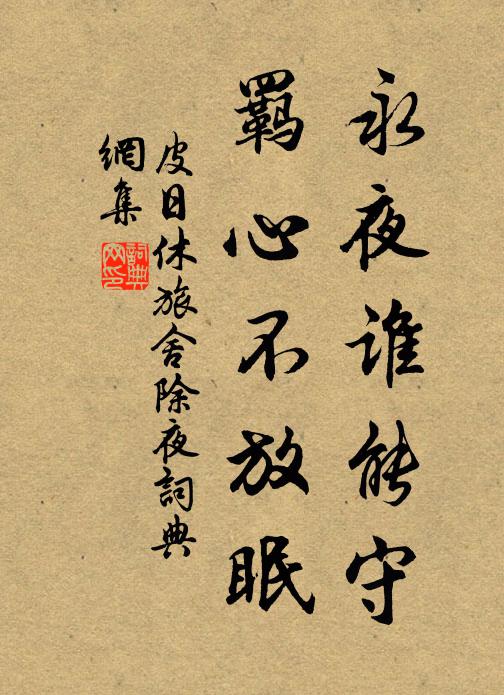 永夜誰能守
羈心不放眠
皮日休旅舍除夜詞典
網集
詞典網印